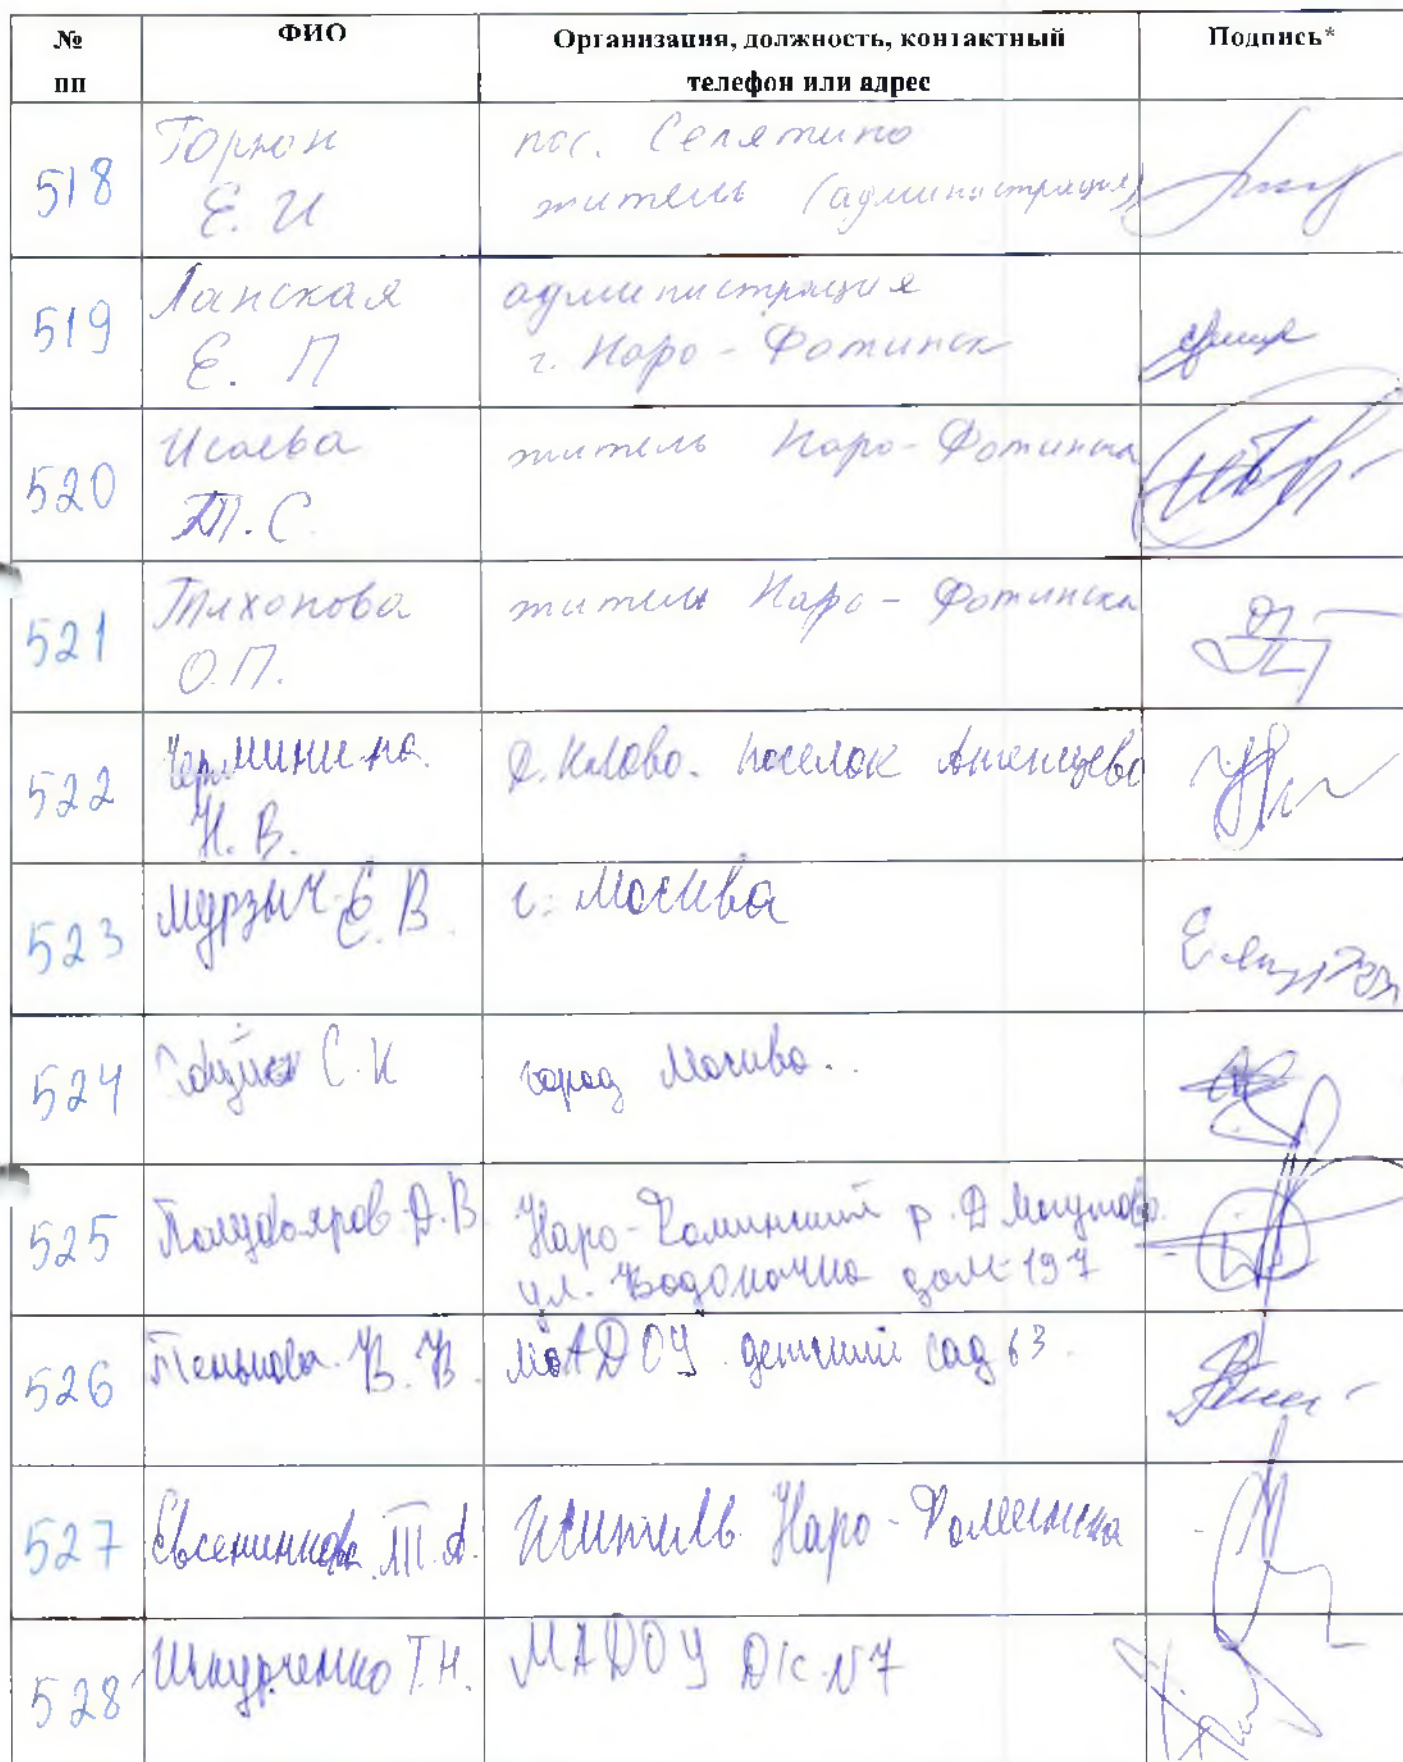 № пп ФИО Организация, должность, контактный телефон или адрес Подпись*
518 Горжон Е. И пос. Селятино
житель (администрация)
519 Ланская Е. П администрация
г. Наро-Фоминск
520 Исаева Т.С. житель Наро-Фоминска
521 Тихонова О.П. житель Наро-Фоминска
522 Н. В. поселок
523 Мурзич Е. В. г. Москва
524 С. К город Москва.
525 Полубояров Д.В. Наро-Фоминский р. Д
ул. Водокачка дом 197
526 Тенькова В. В. МАДОУ детский сад 63
527 Евсенинкова Т. А. Житель Наро-Фоминска
528 Шкурченко Т.Н. МАДОУ Д/с №7